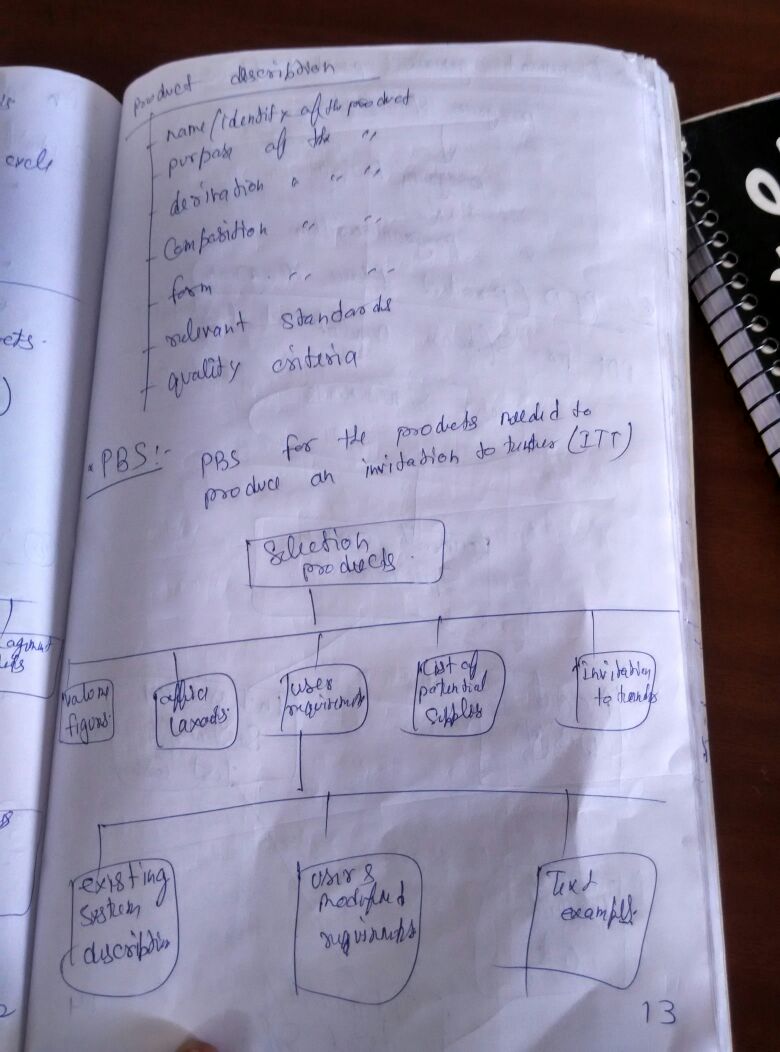 product description
name/Identity of the product
purpose of the "
derivation " " "
Composition " "
form " "
relevant standards
quality criteria
PBS:- PBS for the products needed to
produce an invitation to tender (ITT)
Selection
products
volume
figures
office
layouts
user
requirements
List of
potential
suppliers
Invitation
to tender
existing
system
description
users
modified
requirements
Text
examples
13
cycle